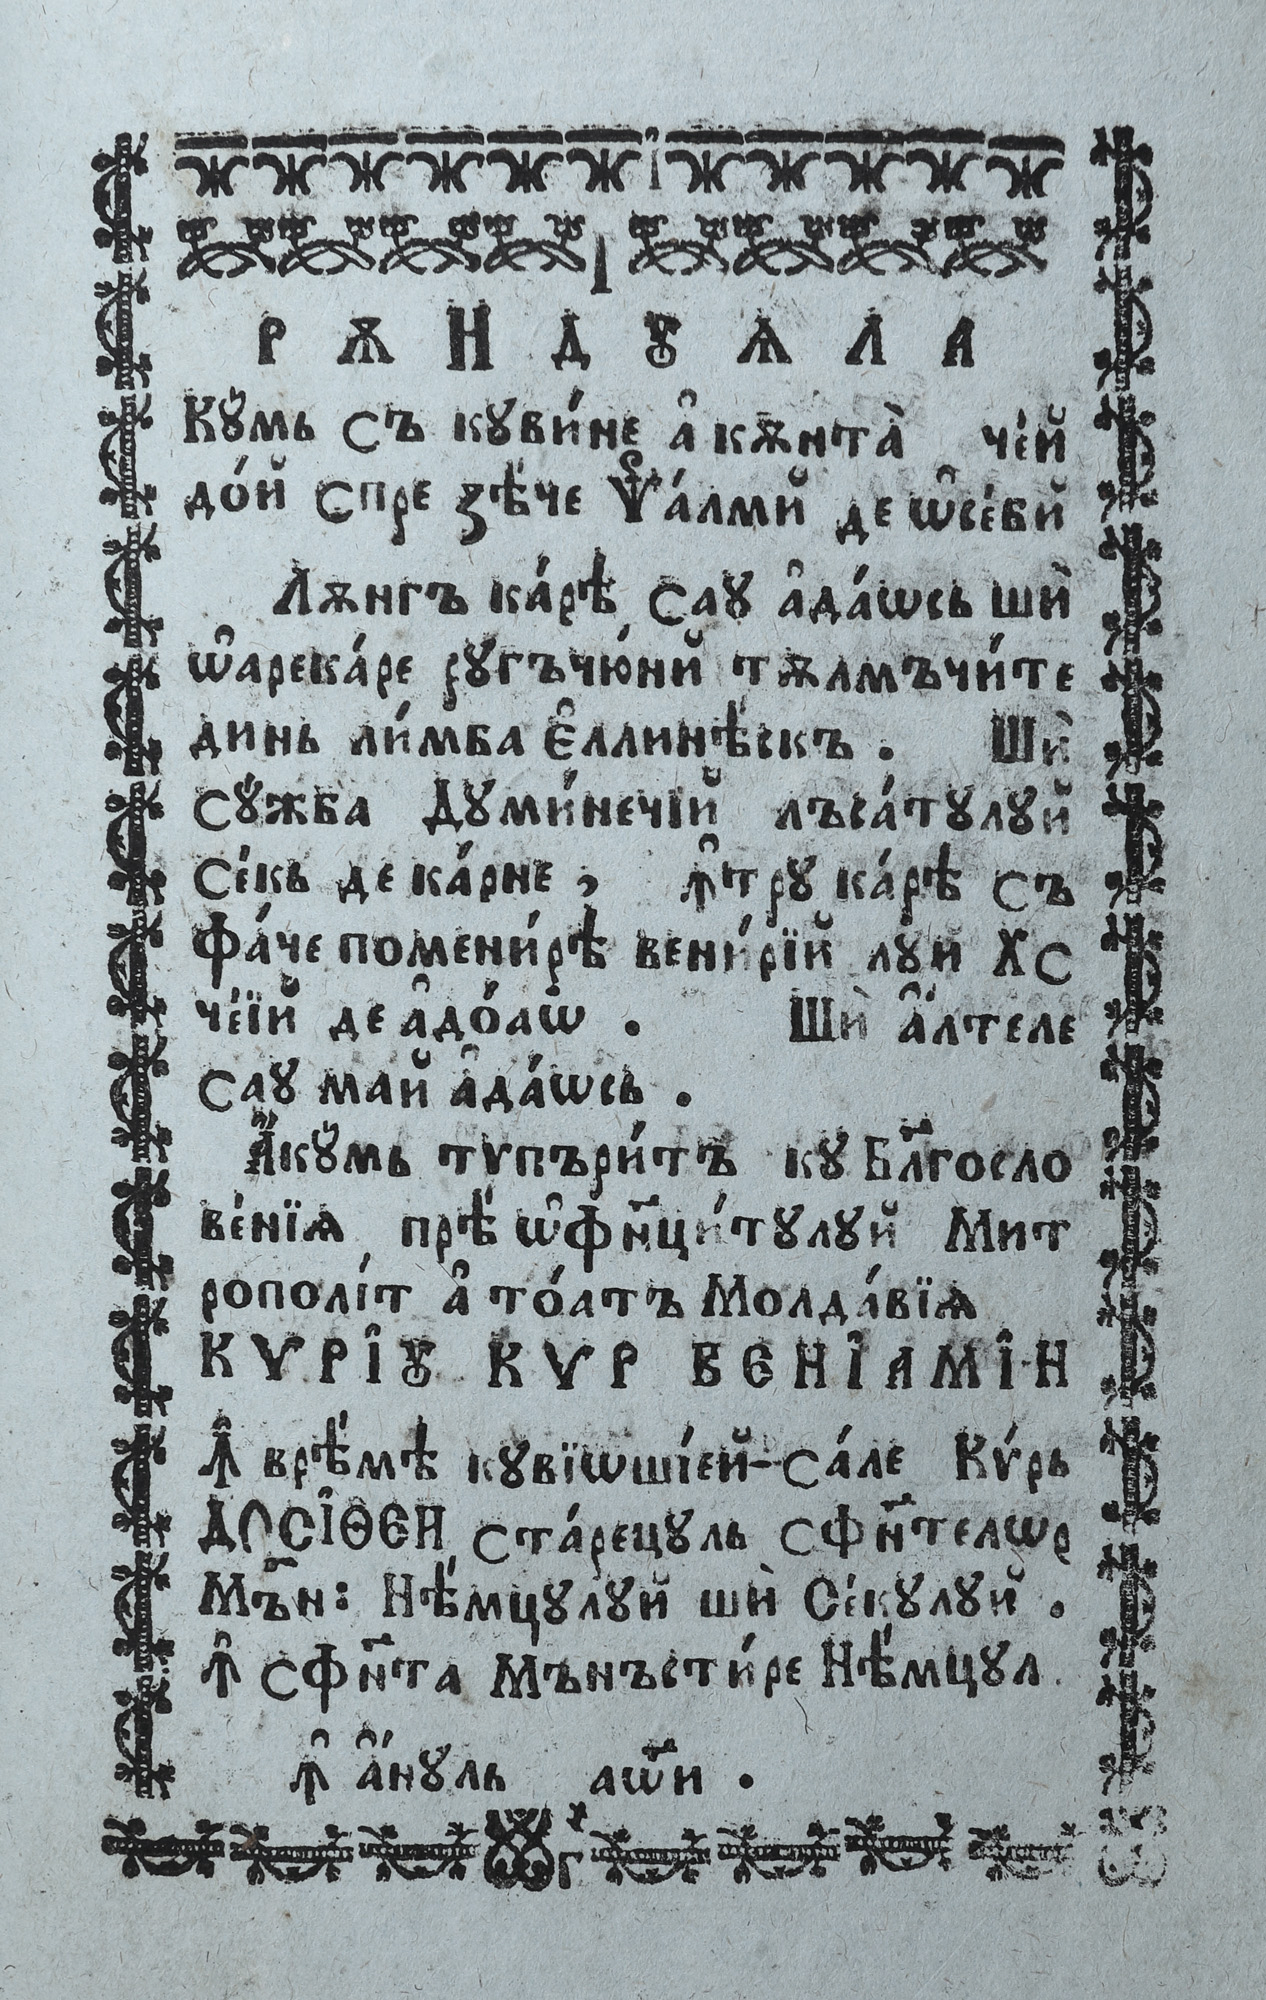 РѪНДꙋѦЛА
Кꙋ́мь съ кꙋви́не а̂ кѫнта̀ че́й
до́й спре зѣ́че Ѱа́лмй де ѡ̂се́бй
Лѫнгъ ка́рѣ саꙋ а̂да́ѡсь шѝ
ѡ̂арека́ре рꙋгъчю́нй тѫлмъчи́те
динь ли́мба є̂ллинѣ́скъ . Шѝ
сꙋ́жба Дꙋми́нечїй лъса́тꙋлꙋй
се́кь де ка́рне , ꙟ̂трꙋ ка́рѣ съ
фа́че помени́рѣ вени́рїй лꙋй Хс
че́їй де а̂до́аѡ . Шѝ а҆́лтеле
саꙋ май а̂да́ѡсь .
А҆кꙋ́мь тѵпъри́тъ кꙋ Бл҃госло
ве́нїѧ прѣ́ ѡ̂сфн҃ци́тꙋлꙋй Мит
рополі́т а̂ то́атъ Молда́вїѧ
КѴРІꙋ КѴР ВЕНІАМІН
Ꙟ̂ врѣ́мѣ кꙋвїѡші́ей-са́ле Кѵ́рь
ДОСІѲЕИ ста́рецꙋль сфн҃телѡр
Мъ҃н: Нѣ́мцꙋлꙋй шѝ Се́кꙋлꙋй .
Ꙟ̂ сфн҃та Мънъсти́ре Нѣ́мцꙋл .
ꙟ̂ а҆́нꙋль аѡ҃и .